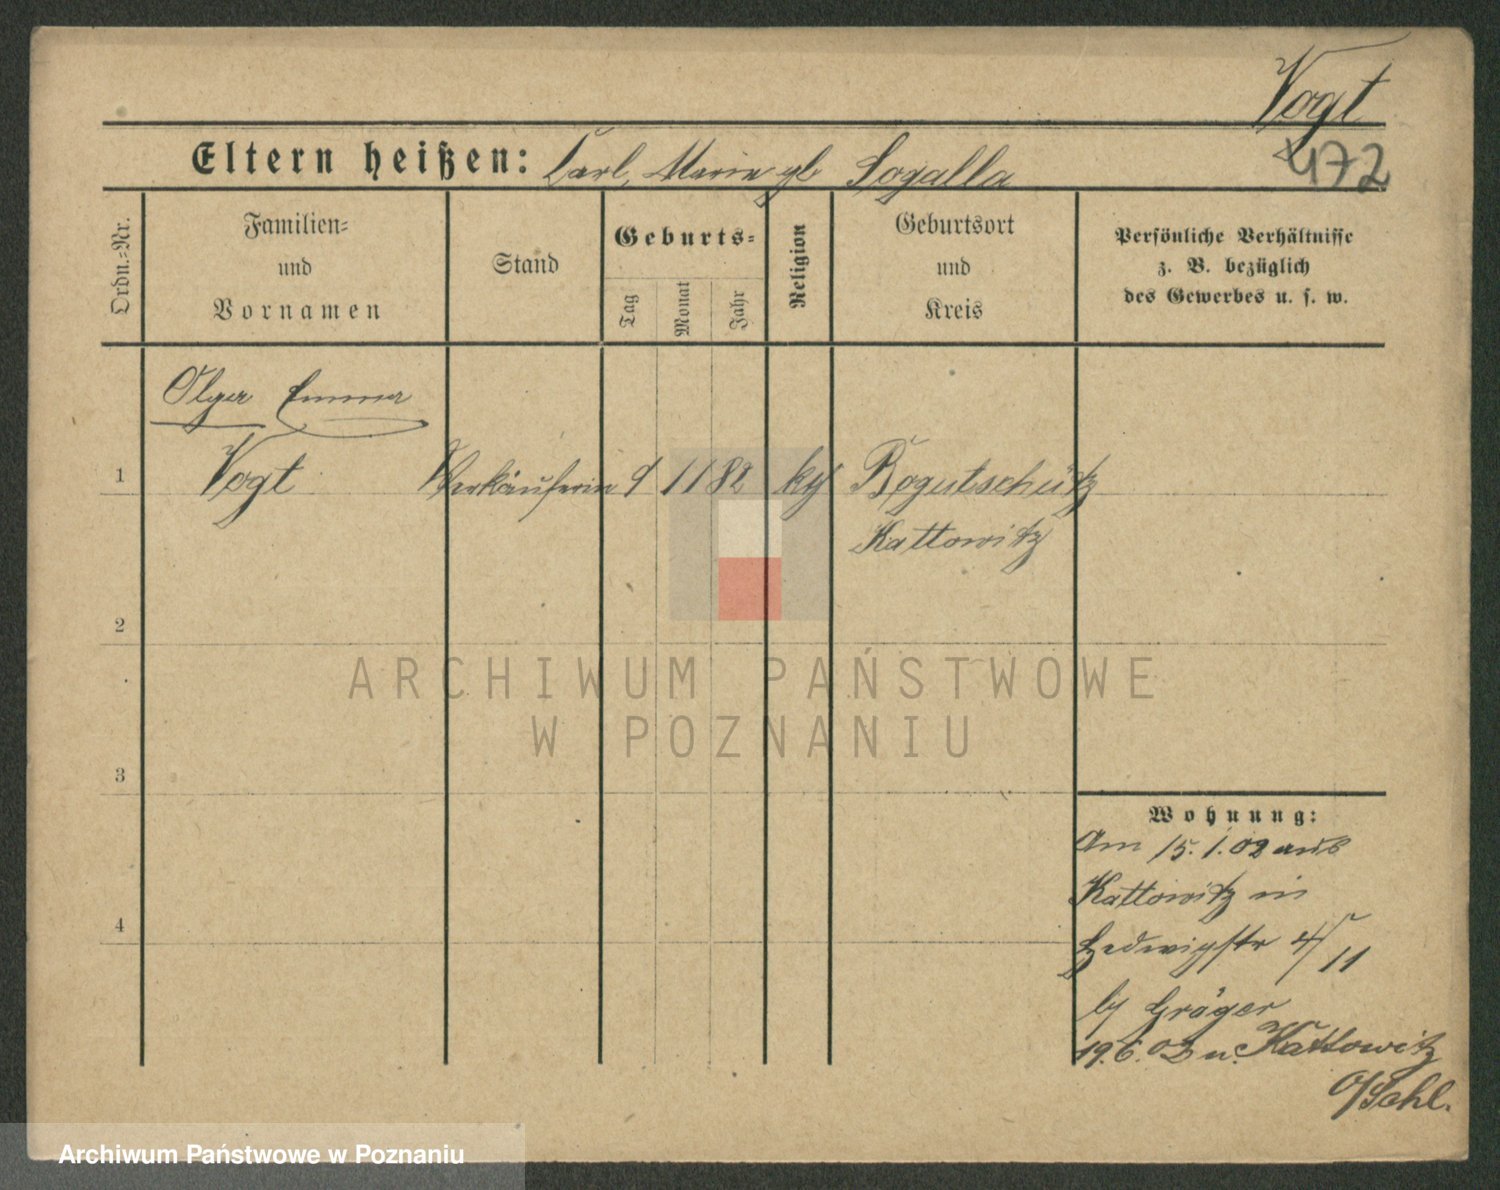 Vogt
472
Eltern heißen: Carl, Marie gb Sogalla
Ordn.-Nr.
Familien-
und
Vornamen
Stand
Geburts-
Tag
Monat
Jahr
Religion
Geburtsort
und
Kreis
Persönliche Verhältnisse
z. B. bezüglich
des Gewerbes u. s. w.
Olga Emma
1 Vogt Verkäuferin 9 11 82 Bogutschütz
Kattowitz
2
ARCHIWUM PAŃSTWOWE
W POZNANIU
3
Wohnung:
Am 15.1.02 aus
Kattowitz in
4
Hedwigstr 4/11
by Gräger
19.6.02 n. Kattowitz
O/Schl.
Archiwum Państwowe w Poznaniu